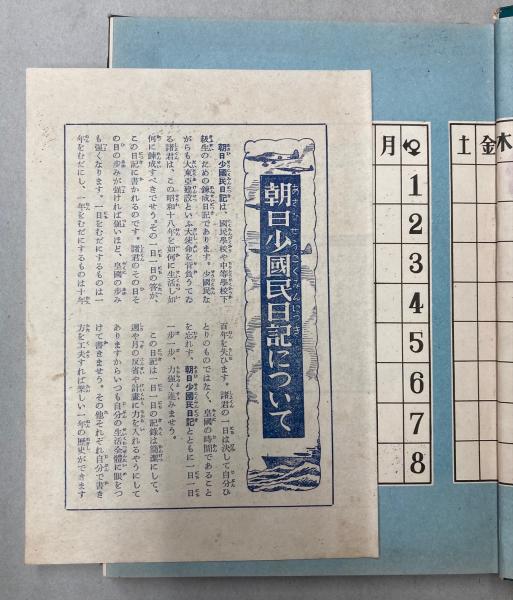 朝日少國民日記について
朝日少國民日記は、國民學校や中等學校下
級生のための錬成日記であります。少國民な
がらも大東亞建設といふ大使命を背負うてゐ
る諸君は、この昭和十八年を如何に生活し如
何に錬成すべきでせう。その一日一日の答が、
この日記に書かれるのです。諸君のその日そ
の日の歩みが強ければ強いほど、皇國の歩み
も強くなります。一日をむだにするものは一
年をむだにし、一年をむだにするものは十年
百年を失ひます。諸君の一日は決して自分ひ
とりのものではなく、皇國の時間であること
を忘れず、朝日少國民日記とともに一日一日
一歩一歩、力強く進みませう。
この日記は一日一日の記録は簡潔にして、
週や月の反省や計畫に力を入れるやうにして
ありますからいつも自分の生活全體に眼をつ
けて書きませう。その他それぞれ自分で書き
方を工夫すれば樂しい一年の歴史ができます
月
1
2
3
4
5
6
7
8
土 金 木